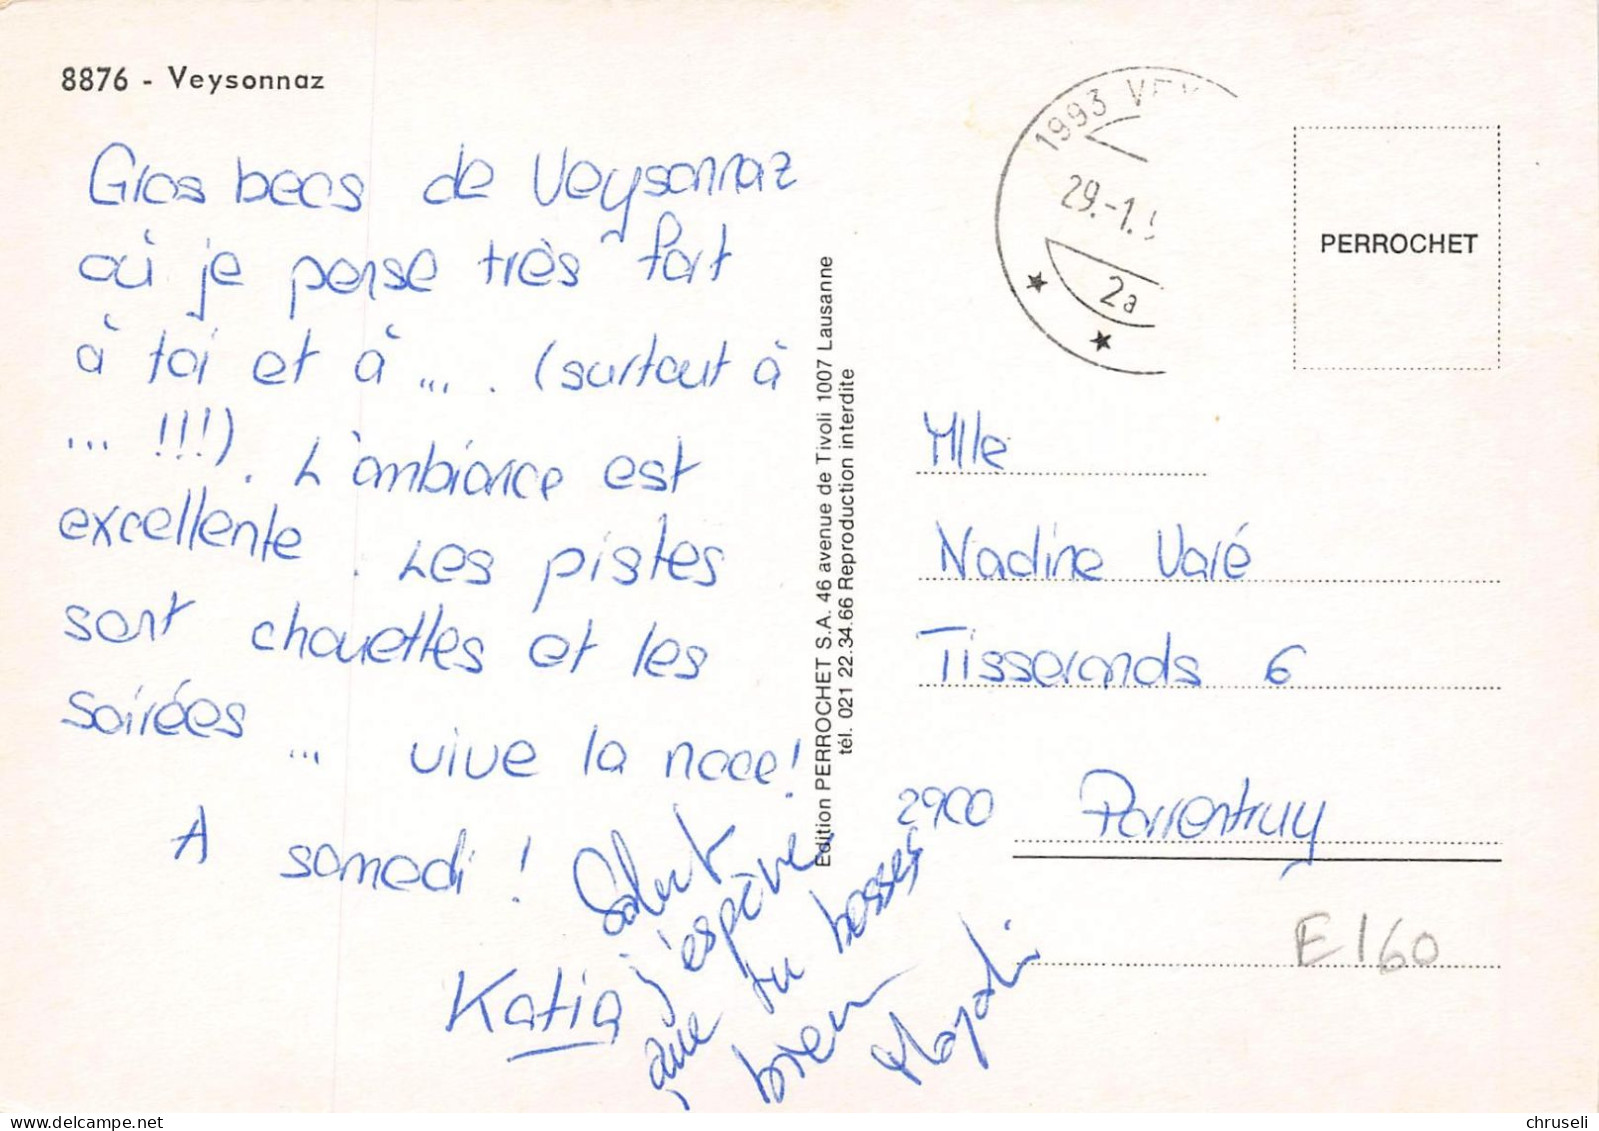 8876 - Veysonnaz
Gros becs de Veysonnaz
où je pense très fort
à toi et à .... (surtout à
... !!!). L'ambiance est
excellente. Les pistes
sont chouettes et les
soirées ... vive la noce!
A samedi !
Katia
Salut
j'espère
que tu bosses
bien
Magali
Edition PERROCHET S.A. 46 avenue de Tivoli 1007 Lausanne
tél. 021 22.34.66 Reproduction interdite
1993 VEY
29.-1.9
2a
PERROCHET
Mlle
Nadine Varé
Tisserands 6
2900 Porrentruy
E160
chruseli